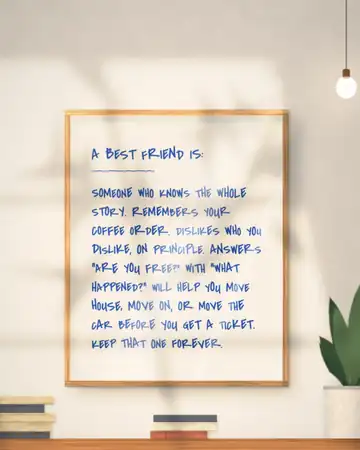 A BEST FRIEND IS:
SOMEONE WHO KNOWS THE WHOLE
STORY. REMEMBERS YOUR
COFFEE ORDER. DISLIKES WHO YOU
DISLIKE, ON PRINCIPLE. ANSWERS
"ARE YOU FREE?" WITH "WHAT
HAPPENED?" WILL HELP YOU MOVE
HOUSE, MOVE ON, OR MOVE THE
CAR BEFORE YOU GET A TICKET.
KEEP THAT ONE FOREVER.